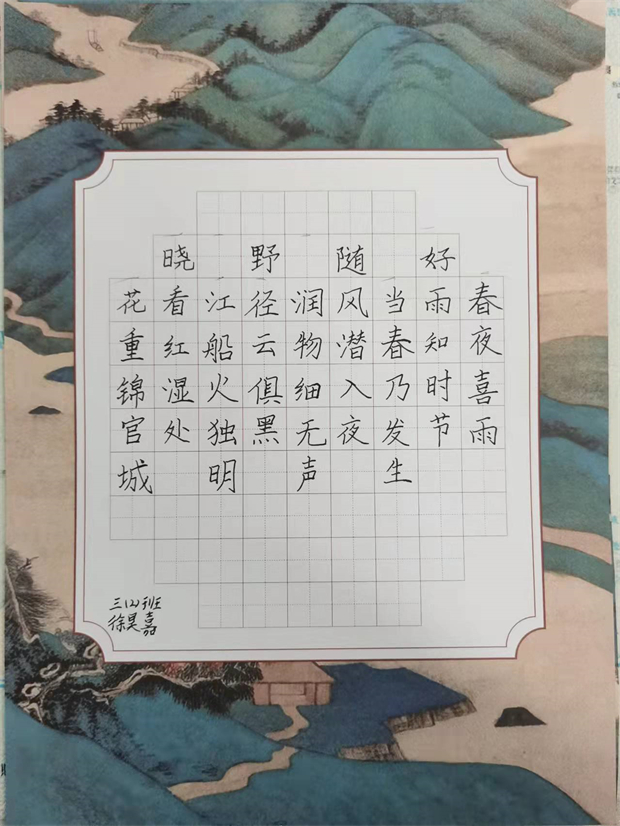 春夜喜雨
好雨知时节
当春乃发生
随风潜入夜
润物细无声
野径云俱黑
江船火独明
晓看红湿处
花重锦官城
三(2)班
徐昊嘉